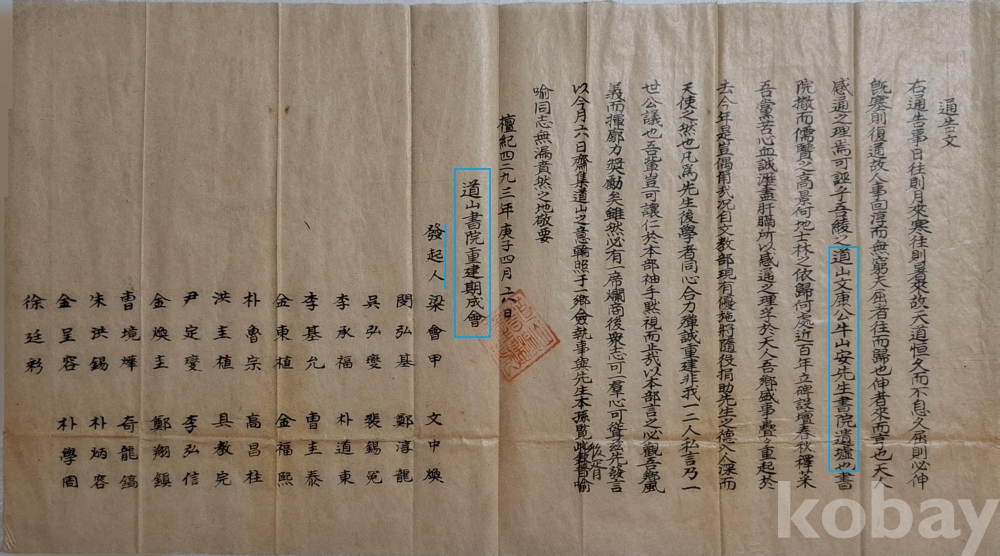 通告文
右通告事日往則月來寒往則暑來故天道恒久而不息久屈則必伸
旣塞則復通故人事回淳而無窮夫屈者往而歸也伸者來而言也天人
感通之理焉可誣乎吾綾之道山文康公牛山安先生書院遺墟也書
院撤而儒賢之高景何地士林之依歸何處近百年立碑設壇春秋釋菜
吾黨苦心血誠瀝盡肝腦所以感通之理孚於天人吾鄉盛事疊々重起於
去今年是豈偶爾哉況自文教部現有優施將隨役捐助先生之德入人深而
天使之然也凡爲先生後學者同心合力殫誠重建非我一二人私言乃一
世公議也吾輩豈可讓仁於本部袖手默視而止哉以本部言之必觀吾鄉風
義而揮廓力奬勵矣雖然必有一席爛商後衆志可一羣心可從玆先發言
以今月六日齋集道山之意輪照于一鄉僉執事與先生本孫覽此
喻同志無漏賁然之地敬要
檀紀四二九三年庚子四月六日
道山書院重建期成會
發起人 梁會甲 文中煥
閔弘基 鄭淳龍
吳弘燮 裴錫冕
李承福 朴道東
李基允 曹圭泰
金東植 金福熙
朴魯宗 高昌柱
洪圭植 具教完
尹定燮 李弘信
金煥圭 鄭翔鎭
曺境燁 奇龍鎬
宋洪錫 朴炳容
金呈容 朴學周
徐廷彩
kobay